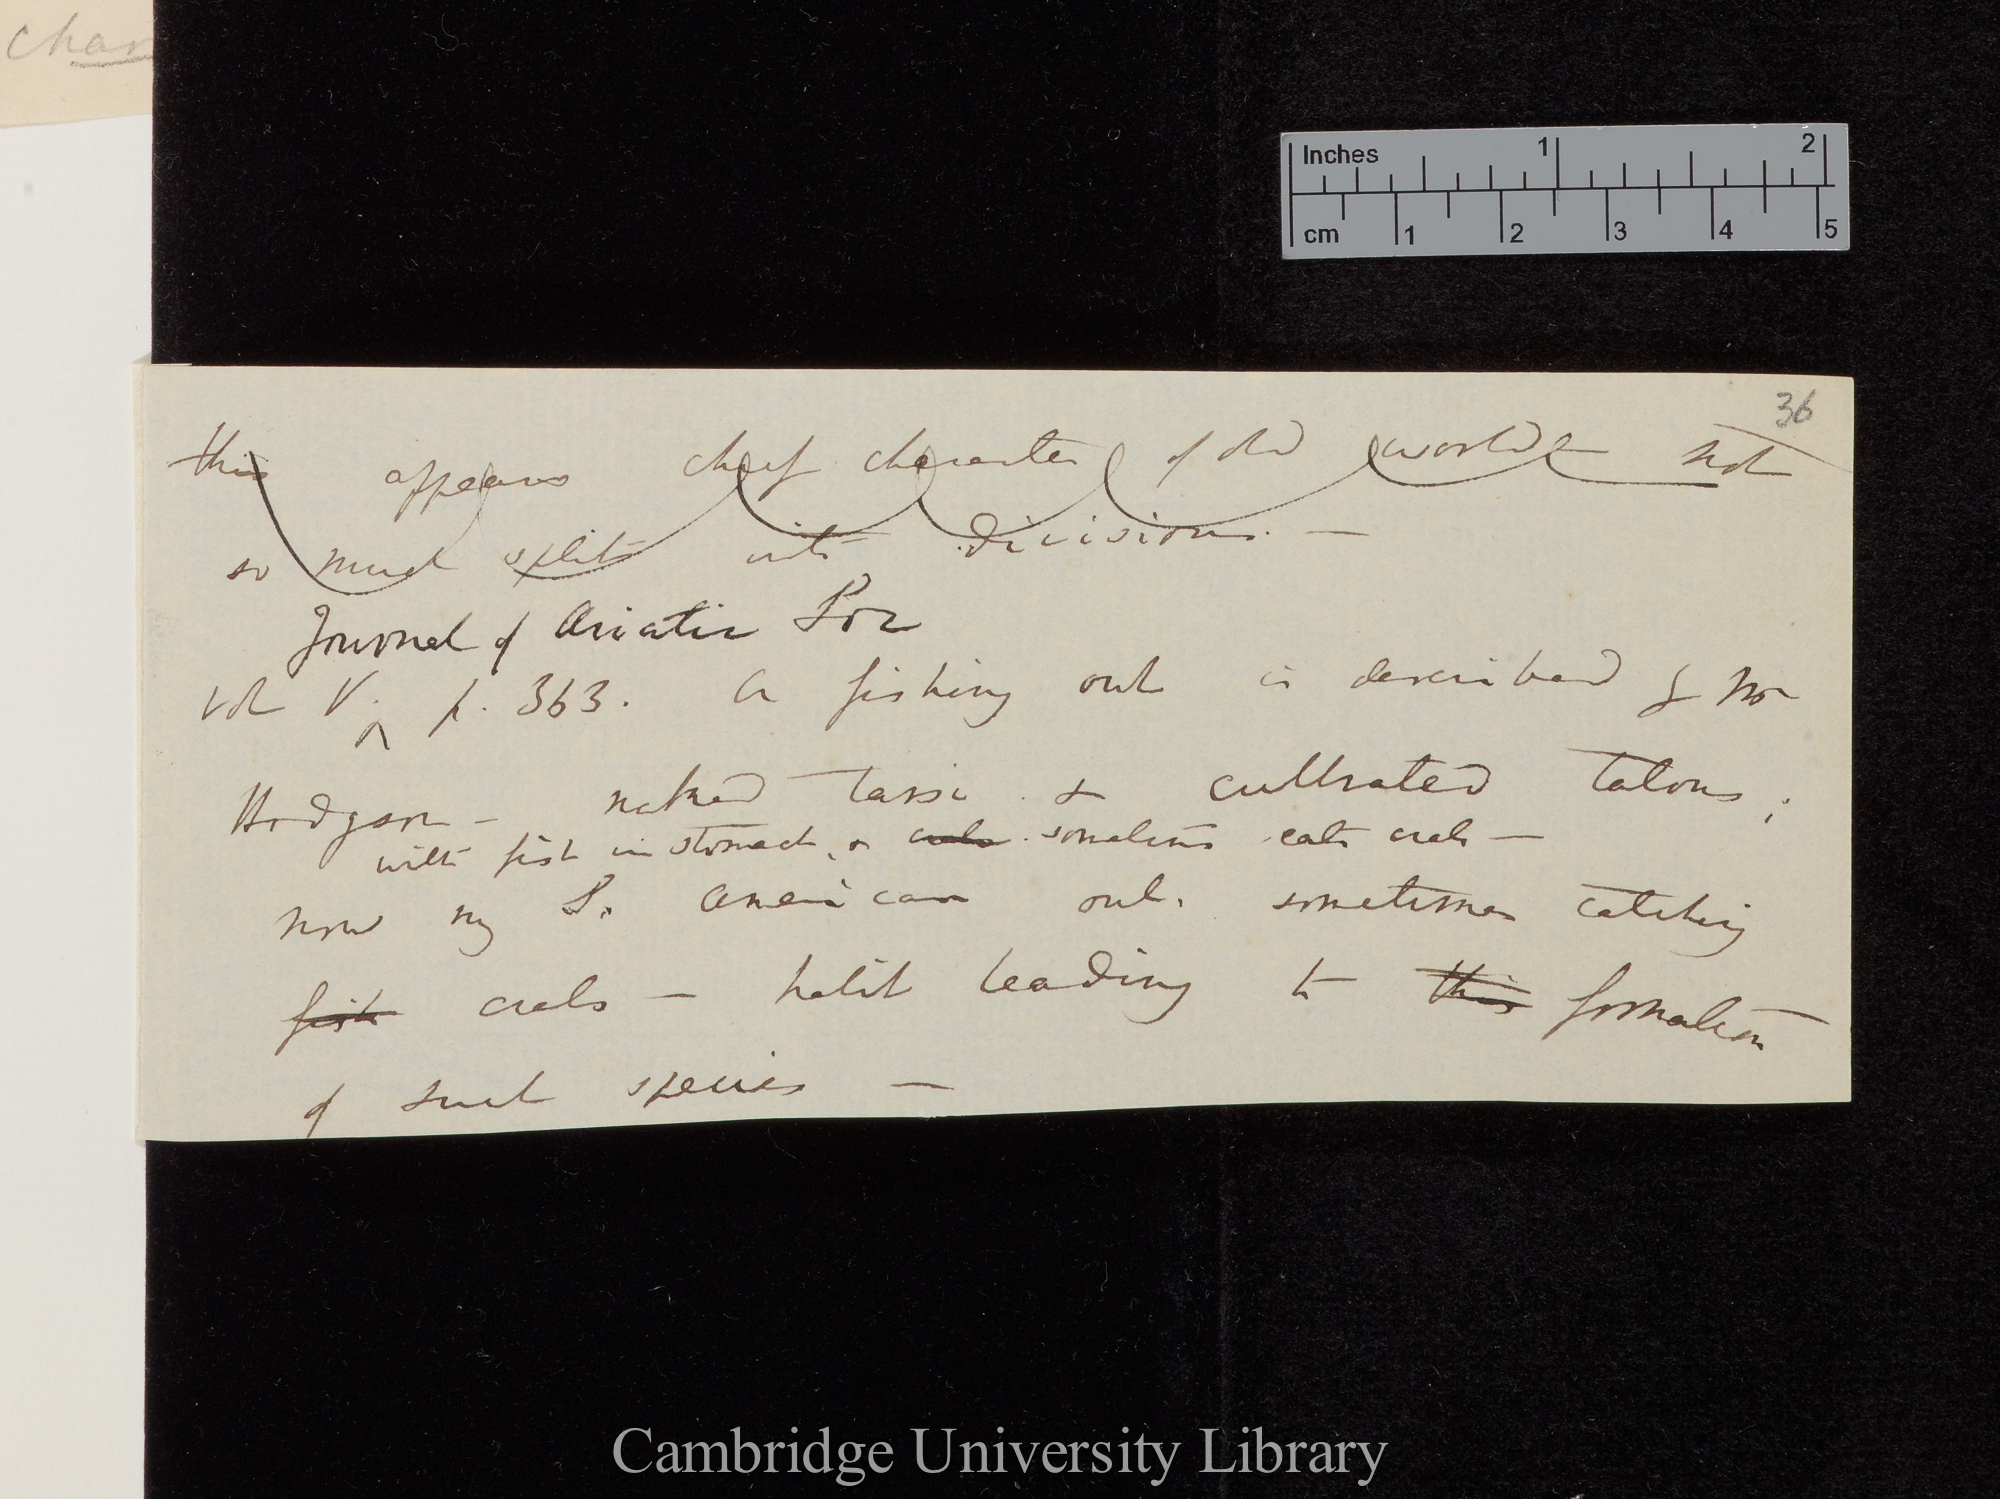 char
Inches 1 2
cm 1 2 3 4 5
36
this appears chief character of old world not
so much split into divisions. —
Journal of Asiatic Soc
vol V. p. 363. A fishing owl is described by Mr
Hodgson — naked tarsi & cultrated talons;
with fish in stomach, & crabs sometimes eats crabs —
now my S. American owl. sometimes catching
fish crabs — habit leading to this formation
of such species —
Cambridge University Library